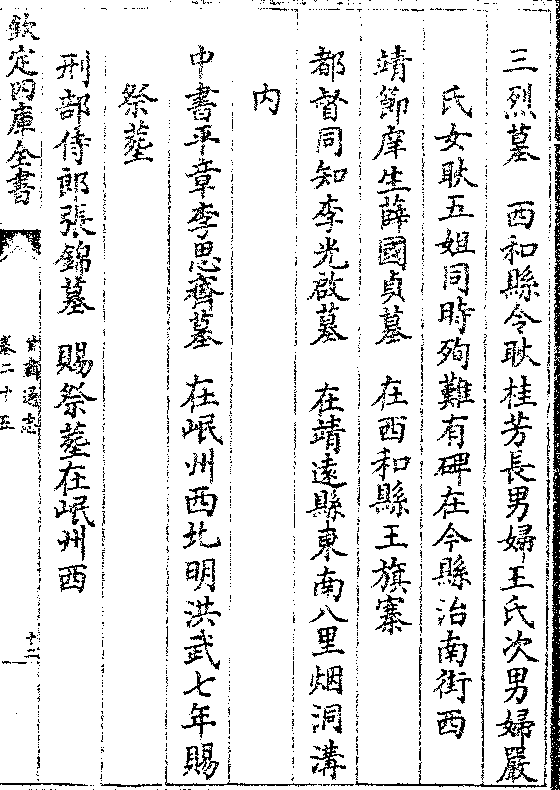 三烈墓　西和縣令耿桂芳長男婦王氏次男婦嚴
氏女耿五姐同時殉難有碑在今縣治南街西
靖節庠生薛國貞墓　在西和縣王旗寨
都督同知李光啟墓　在靖遠縣東南八里烟洞溝
内
中書平章李思齊墓　在岷州西北明洪武七年賜
祭塟
刑部侍郎張錦墓　賜祭塟在岷州西
欽定四庫全書
甘肅通志
卷二十五
十二